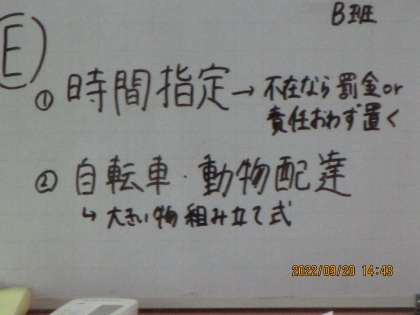 B班
E
① 時間指定 → 不在なら罰金or
責任おわず置く
② 自転車・動物配達
↳ 大きい物 組み立て式
2022/09/20 14:43